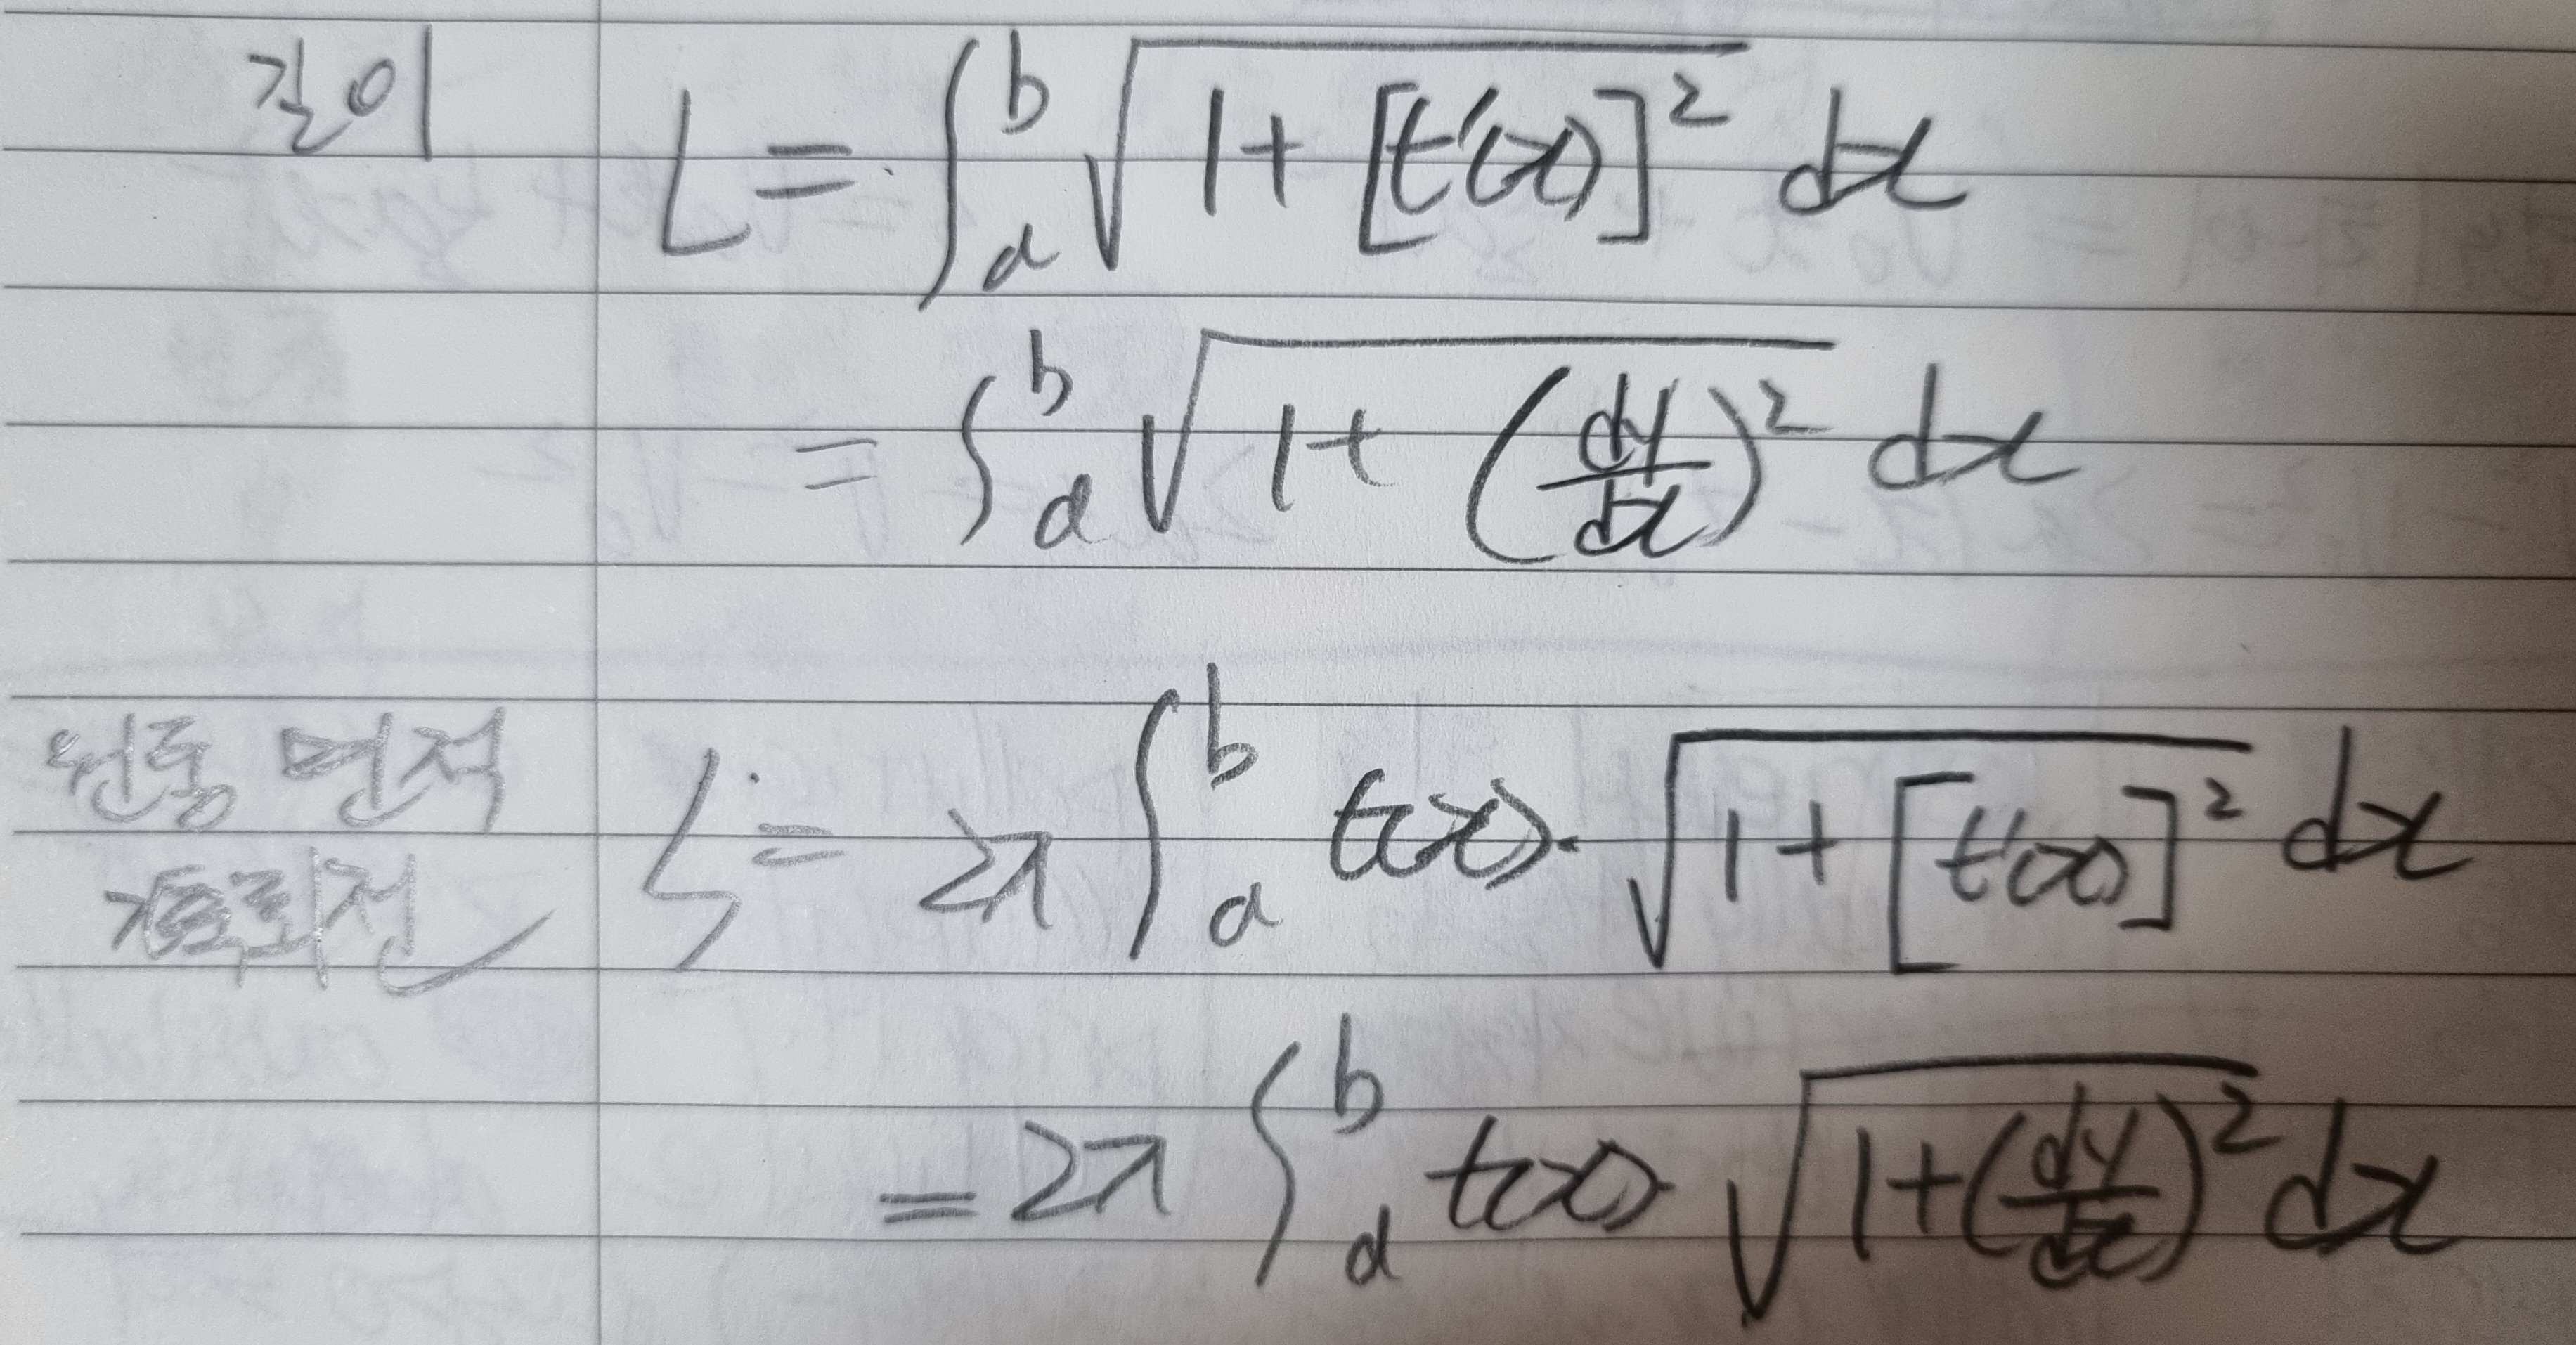 길이 L = ∫_a^b √(1 + [f'(x)]²) dx
= ∫_a^b √(1 + (dy/dx)²) dx
원통 면적 S = 2π ∫_a^b f(x) · √(1 + [f'(x)]²) dx
x축회전
= 2π ∫_a^b f(x) · √(1 + (dy/dx)²) dx